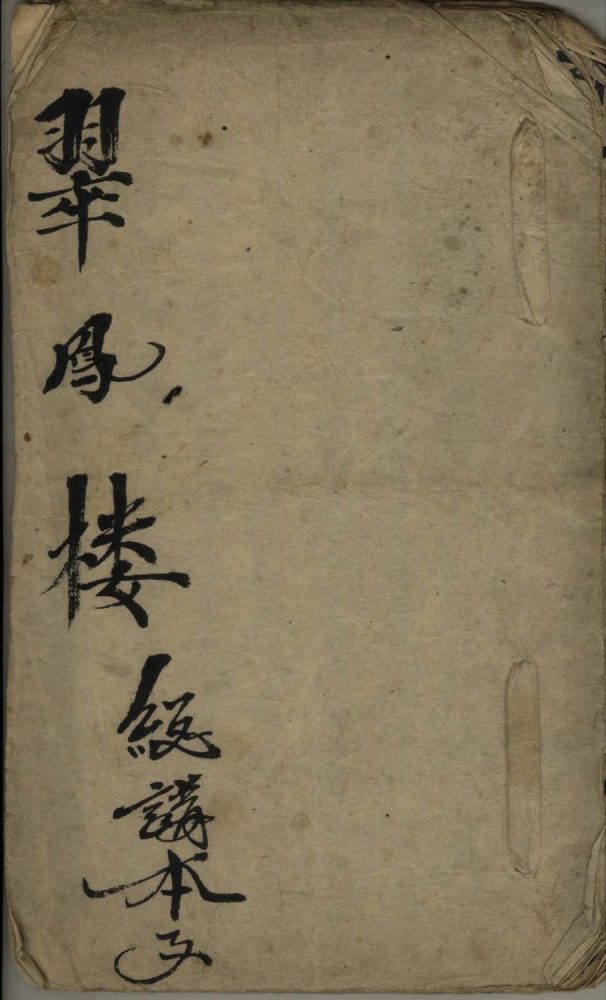 翠鳳楼
総講本子